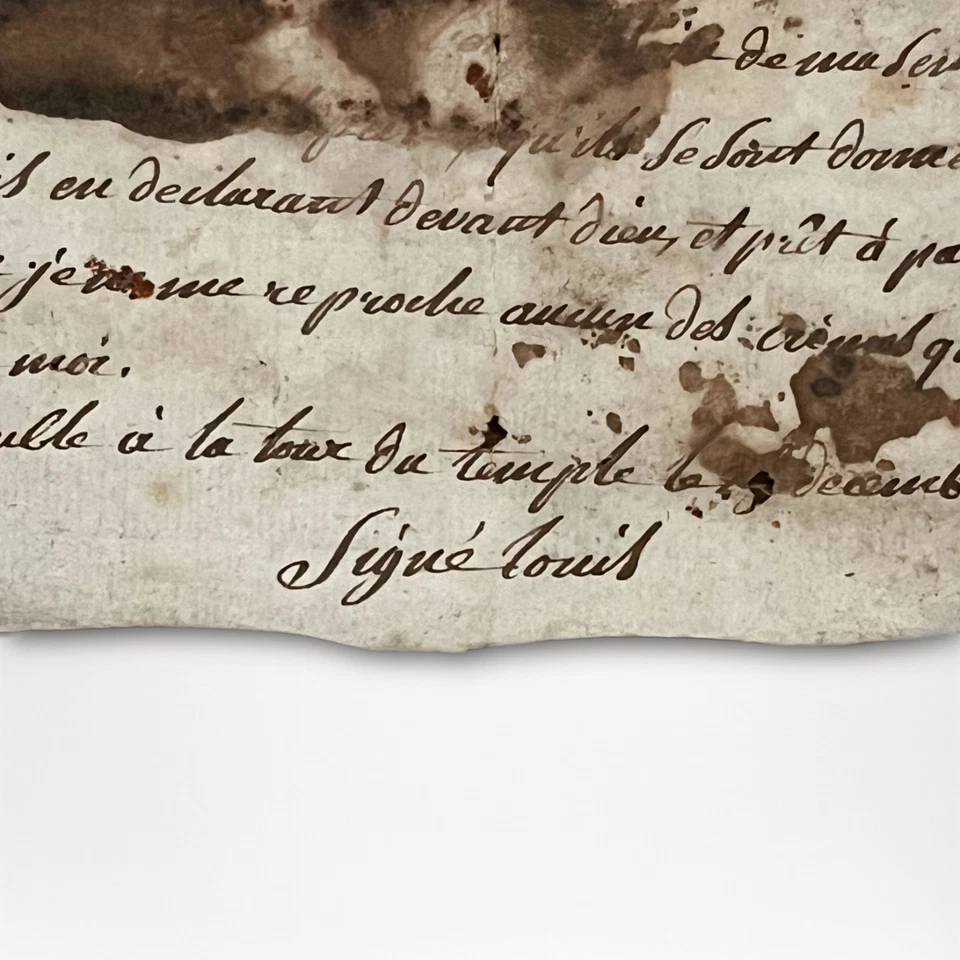 de ma
qu'ils se sont donné
en declarant devant dieu, et prêt à pa
je ne me reproche aucun des crimes q
moi.
à la tour du temple le decemb
Signé louis